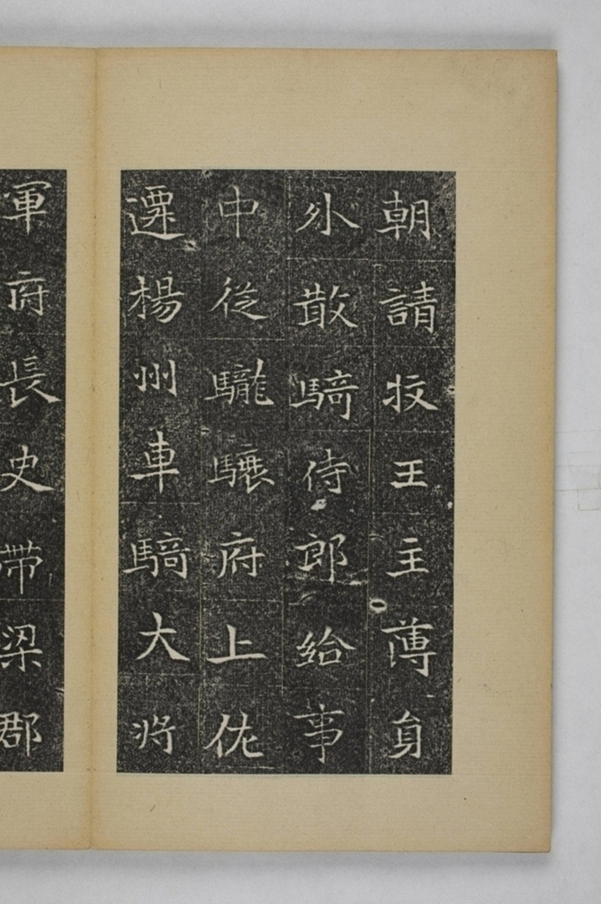 朝請投王主薄負
外散騎侍郎給事
中從驪驤府上佐
遷楊州車騎大將
軍府長史帶梁郡